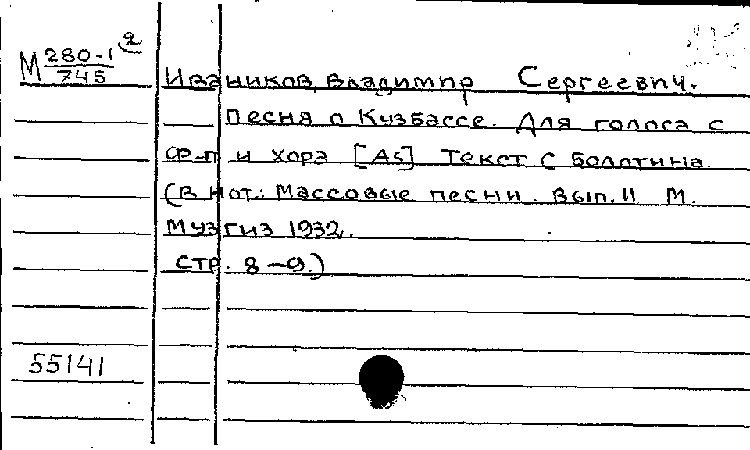 М 280-1 2
745
Иванников, Владимир Сергеевич.
Песня о Кузбассе. Для голоса с
ф-п и хора [As] Текст С Болотина.
(в нот.: Массовые песни. Вып. II М.
Музгиз 1932.
стр. 8-9.)
55141